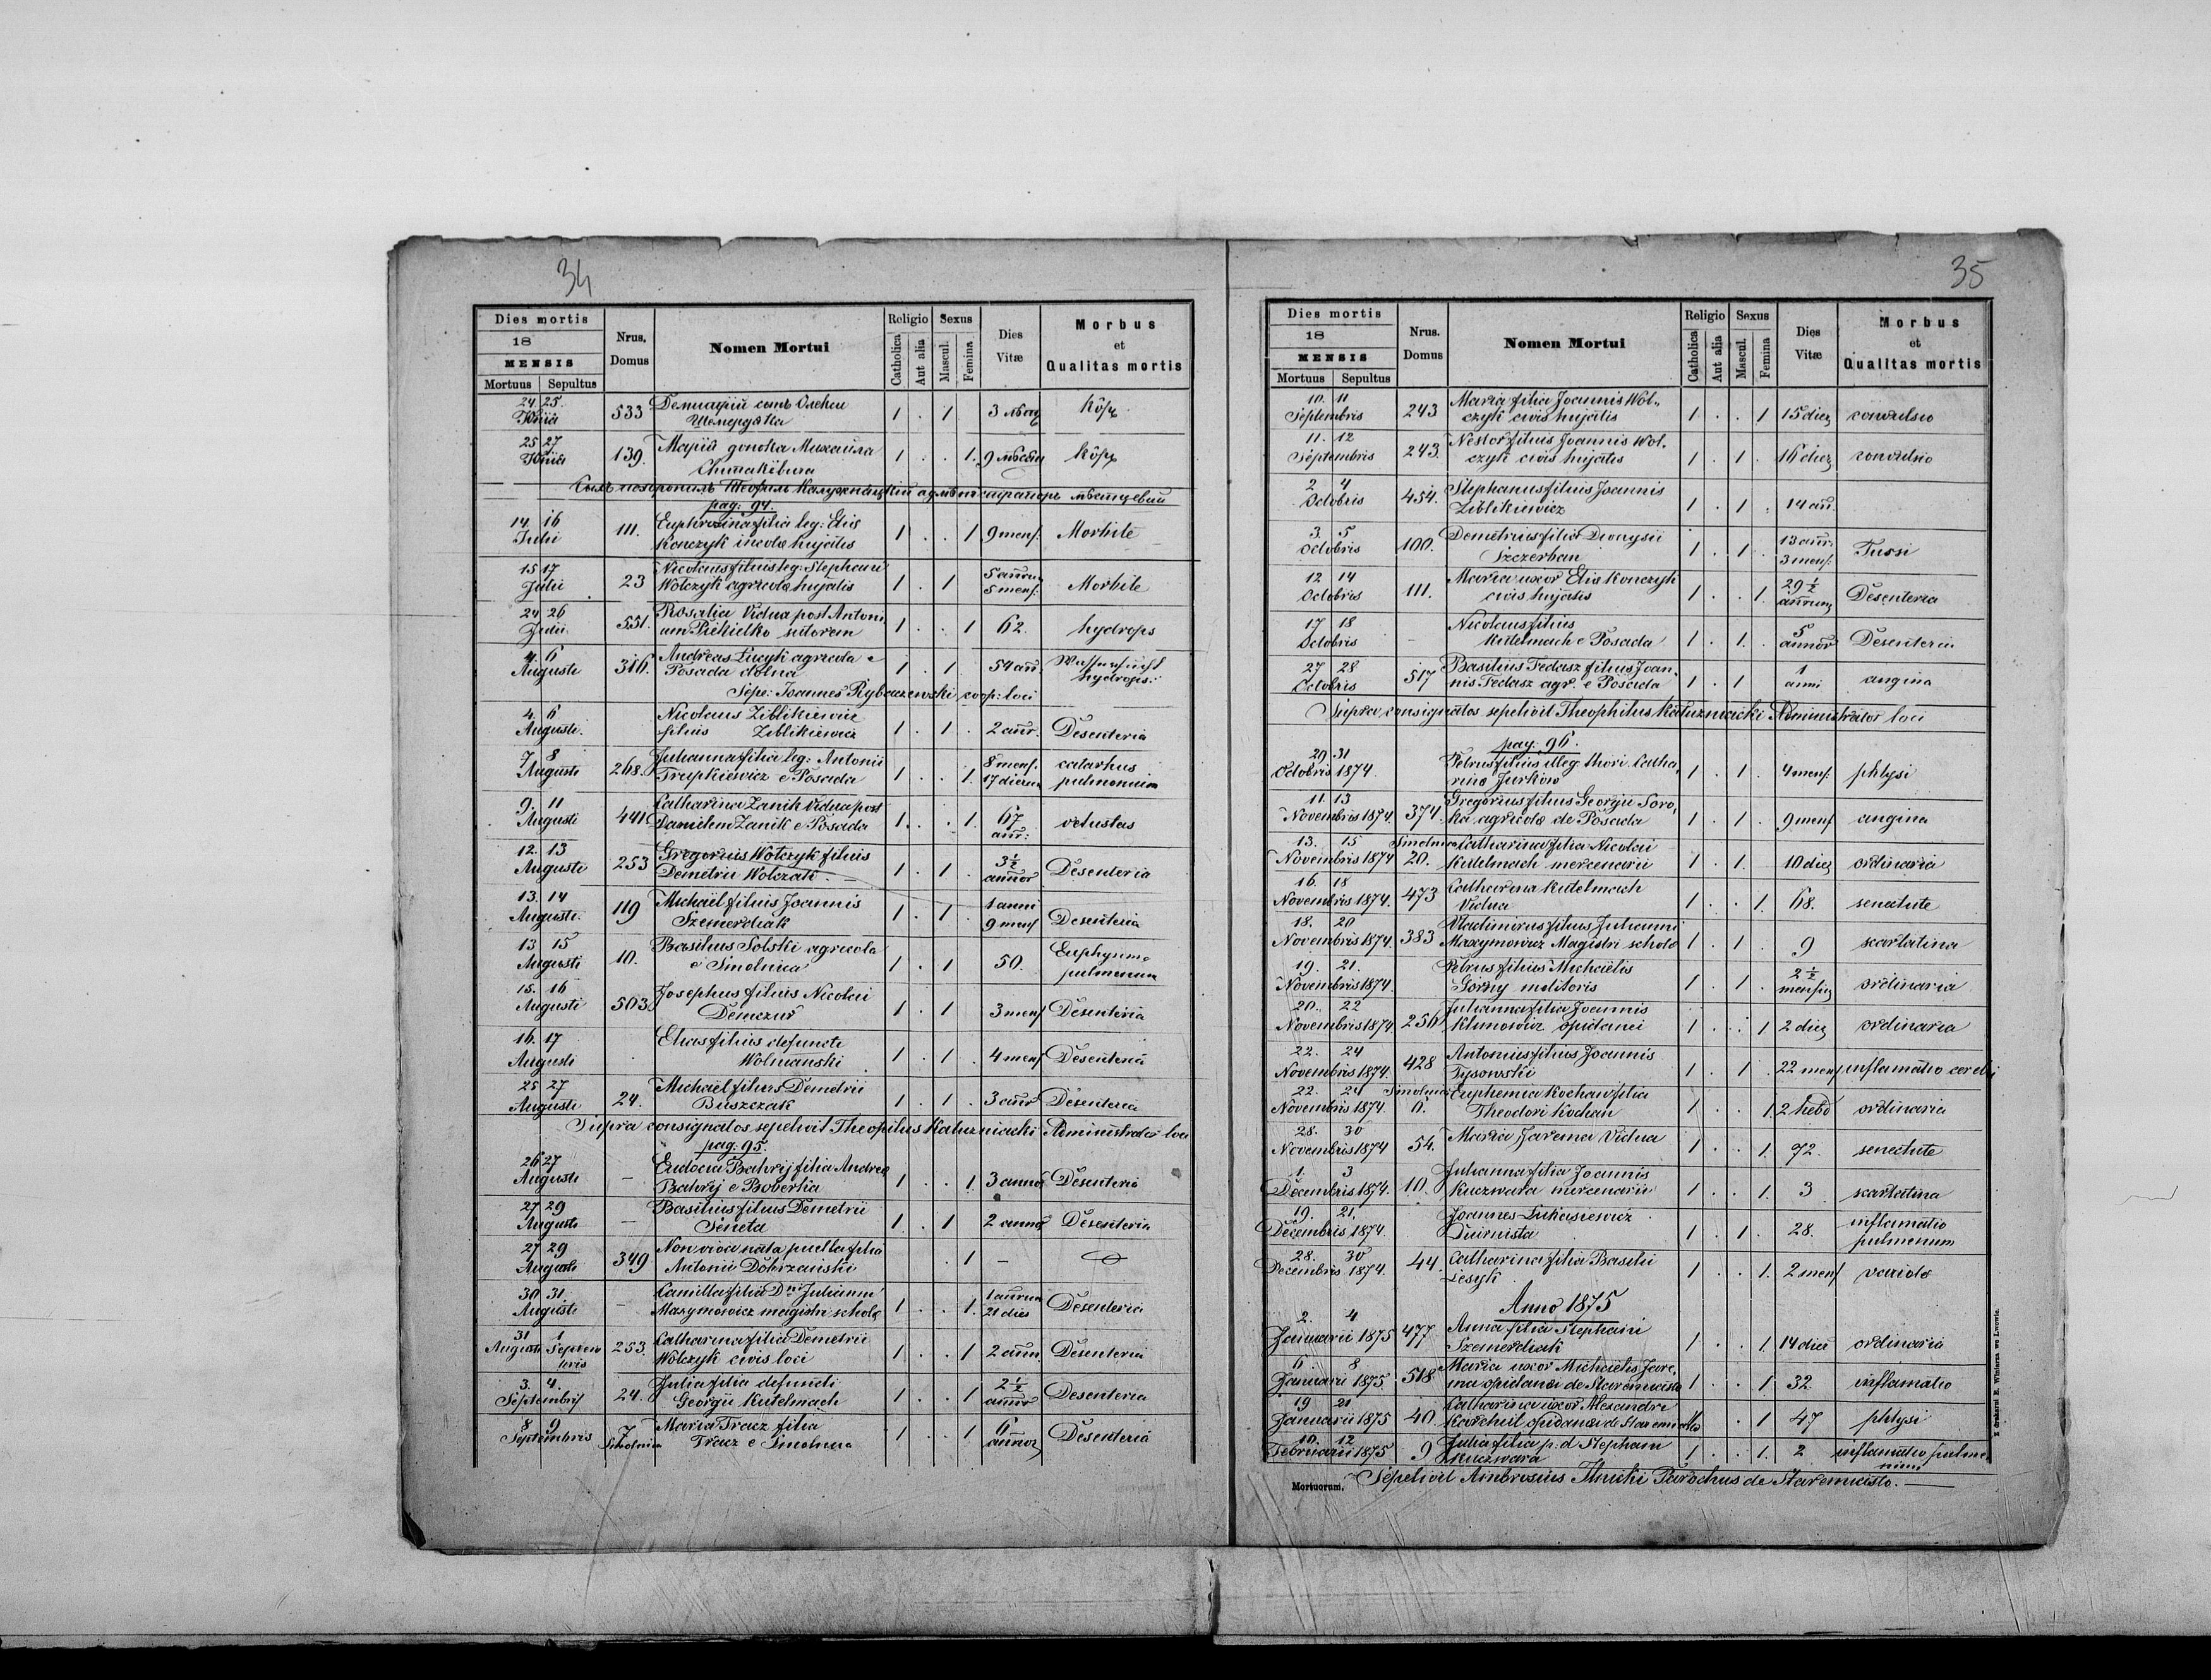 34
Dies mortis
18
MENSIS
Mortuus Sepultus
Nrus. Domus
Nomen Mortui
Religio
Catholica Aut alia
Sexus
Mascul. Femina
Dies Vitæ
Morbus et Qualitas mortis
24 25 533 сынъ 1 . 1 3
Шемердяка
25 27 139. Марія дочка Михаила 1 . . 1. 9
pag: 94.
14. 16 111. Euphrozina filia leg: Eliæ 1 . . 1 9 mens: Morbile
Julii Konczyk incolæ hujatis
15 17 23 Nicolaus filius leg: Stephani 1 . 1 5 annorum Morbile
Julii Wolczyk agricolæ hujatis 5 mens:
24 26 551. Rosalia Vidua post Antoni 1 . . 1 62. hydrops
Julii um Pikielko sutorem
4. 6 316. Andreas Lucyk agricola e 1 . 1. 54 ann.
Augusti Posada dolna hydrops:
Sepe: Joannes Rybaczewski coop: loci
4. 6 Nicolaus Ziblikiewicz 1 . 1 . 2 annr. Desenteria
Augusti. filius Ziblikiewicz
7 8 268. Julianna filia leg: Antonii 1 . . 1. 8 mens. catarhus
Augusti Trupkiewicz e Posada 17 dierum pulmonum
9. 11 441. Catharina Zanik Vidua post 1 . . 1. 67 vetustas
Augusti Danilem Zanik e Posada annr:
12. 13 253 Gregorius Wolczyk filius 1 . 1 . 3½ Desenteria
Augusti Demetrii Wolczak annor
13. 14 119 Michael filius Joannis 1 . 1 . 1 anni Desenteria
Augusti. Szemerdiak 9 mens
13 15 10. Basilius Solski agricola 1 . 1 50.
Augusti e Smolnica pulmonum
15. 16 503 Josephus filius Nicolai 1 . 1 3 mens Desenteria
Augusti Demczur
16. 17 Elias filius defuncti 1 . 1 . 4 mens Desenteria
Augusti Wolmanski
25 27 24. Michael filius Demetrii 1 . 1 . 3 annr Desenteria
Augusti Buszczak
Supra consignatos sepelivit Theopilus Kaluzniacki Administrator loci
pag: 95.
26 27 — Eudocia Bahrij filia Andreæ 1 . . 1 3 annor Desenteria
Augusti Bahrij e Boberka
27 29 — Basilius filius Demetrii 1 . 1 2 annor Desenteria
Augusti Seneta
27 29 349 Non viva nata puella filia . 1 —
Augusti Antonii Dobrzanski
30 31 — Camilla filia Dni Julianni 1 . . 1. 1 annum Desenteria
Augusti Maxymowicz magistri scholæ 21 dies
31 1 253. Catharina filia Demetrii 1 . . 1 2 ann. Desenteria
Augusti Septembris Wolczyk civis loci
3. 4. 24. Julia filia defuncti 1 . . 1 2½ Desenteria
Septembris Georgii Kutelmach annor
8 9 7 Maria Tracz filia 1 . . 1 6 Desenteria
Septembris Smolnica Tracz e Smolnica annor
35
Dies mortis
18
MENSIS
Mortuus Sepultus
Nrus. Domus
Nomen Mortui
Religio
Catholica Aut alia
Sexus
Mascul. Femina
Dies Vitæ
Morbus et Qualitas mortis
10. 11 243 Maria filia Joannis Wol- 1 . . 1 15 dies convulsio
Septembris czyk civis hujatis
11. 12 243. Nestor filius Joannis Wol- 1 . 1 . 16 dies convulsio
Septembris czyk civis hujatis
2 4 454. Stephanus filius Joannis 1 . 1 . 14 ann.
Octobris Ziblikiewicz
3. 5 100. Demetrius filius Dionysii 1 . 1 . 13 annr: Tussi
Octobris Szczerban 3 mens:
12 14 111. Maria uxor Eliæ Konczyk 1 . . 1. 29½ Desenteria
Octobris civis hujatis annrum
17 18 — Nicolaus filius 1 . 1. 5 Desenteria
Octobris Kutelmach e Posada annor
27 28 517 Basilius Fedasz filius Joan- 1 . 1 1 angina
Octobris nis Fedasz agr. e Posada anni
Supra consignatos sepelivit Theophilus Kaluzniacki Administrator loci
pag: 96.
29 31 Petrus filius illeg: thori Catha- 1 . 1 . 4 mens: phtysi
Octobris 1874. rinæ Jurkow
11. 13 374. Gregorius filius Georgii Soro- 1 . 1 . 9 mens angina
Novembris 1874. ka agricolæ de Posada
13. 15 Smolnica Catharina filia Nicolai 1 . 1. 10 dies ordinaria
Novembris 1874 20. Kutelmach mercenarii
16. 18 473 Catharina Kutelmach 1 . . 1. 68. senectute
Novembris 1874. Vidua
18. 20 383 Vladimirus filius Julianni 1 . 1 . 9 scarlatina
Novembris 1874. Maxymowicz Magistri scholæ
19. 21. Petrus filius Michaelis 1 . 1 . 2½ ordinaria
Novembris 1874. Gorny molitoris mensium
20. 22 256 Julianna filia Joannis 1 . . 1 2 dies ordinaria
Novembris 1874. Klimowicz opidanei
22. 24 428 Antonius filius Joannis 1 . 1 . 22 mens inflamatio cerebri
Novembris 1874. Tysowski
22. 24 Smolnica Euphemia Kochan filia 1 . . 1 2 hebd ordinaria
Novembris 1874. 6. Theodori Kochan
28. 30 54. Maria Jarema Vidua 1 . . 1. 72. senectute
Novembris 1874
1. 3 10. Julianna filia Joannis 1 . . 1. 3 scarlatina
Decembris 1874. Kuczwara mercenarii
19. 21. Joannes Lukasiewicz 1 . 1. 28. inflamatio
Decembris 1874. Diurnista pulmonum
28. 30 44. Catharina filia Basilii 1 . . 1. 2 mens variola
Decembris 1874. Lesyk
Anno 1875
2. 4 477 Anna filia Stephani 1 . . 1. 14 dies ordinaria
Januarii 1875 Szemerdiak
6. 8 518 Maria uxor Michaelis Jare- 1 . . 1 32. inflamatio
Januarii 1875 ma opidanei de Staremiasto
19 21 40. Catharina uxor Alexandri . 1 47 phtysi
Januarii 1875 opidanei de Staremiasto
10. 12 9 Julia filia p. d. Stephani 1 . . 1. 2 inflamatio pulmo-
Februarii 1875 Kuczwara num
Mortuorum. Sepelivit Ambrosius Parochus de Staremiasto. —
Z drukarni E. Winiarza we Lwowie.